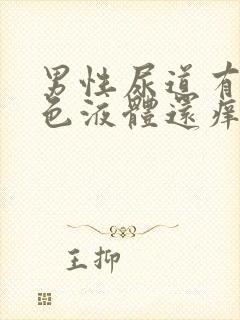 男性尿道有
色液體還痒
王抑